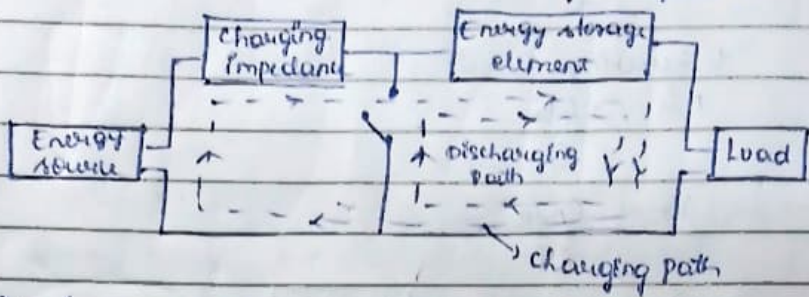 Charging
impedance
Energy storage
element
Energy
source
Discharging
path
Load
Charging path